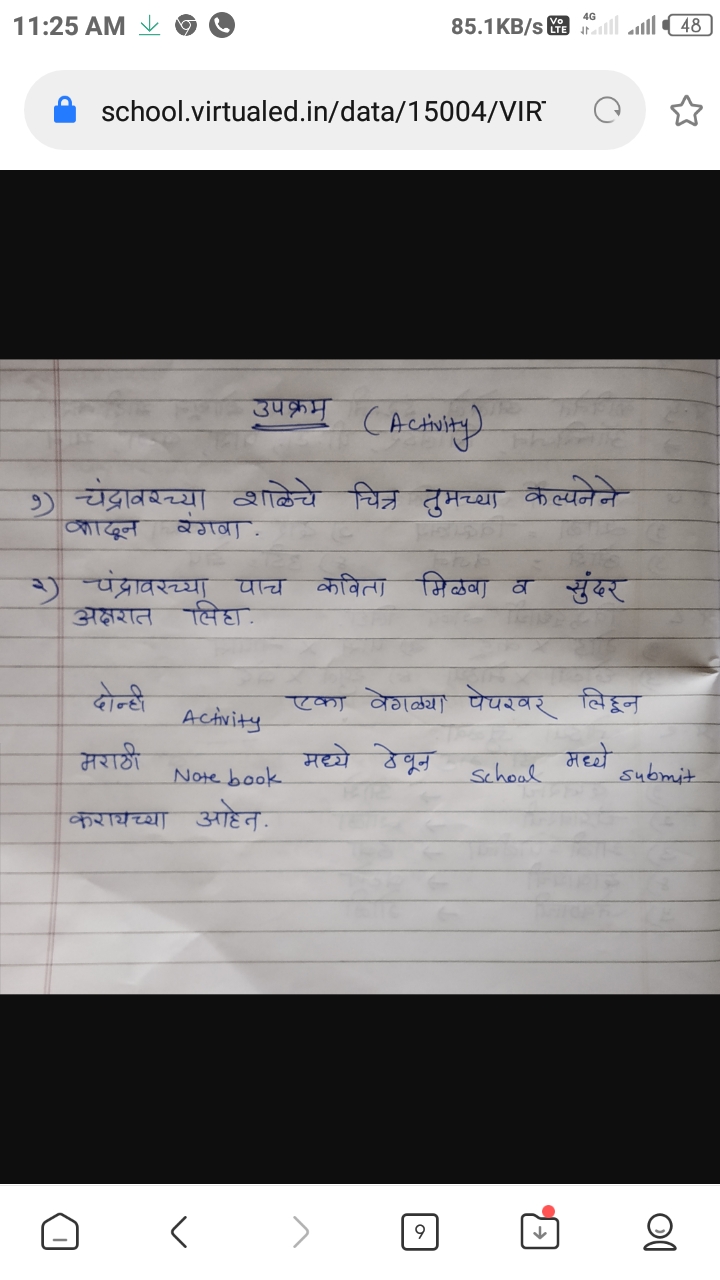 11:25 AM 85.1KB/s Vo LTE 4G 48
school.virtualed.in/data/15004/VIR
उपक्रम (Activity)
१) चंद्रावरच्या शाळेचे चित्र तुमच्या कल्पनेने
काढून रंगवा.
२) चंद्रावरच्या पाच कविता मिळवा व सुंदर
अक्षरात लिहा.
दोन्ही Activity एका वेगळ्या पेपरवर लिहून
मराठी Notebook मध्ये ठेवून school मध्ये submit
करायच्या आहेत.
9